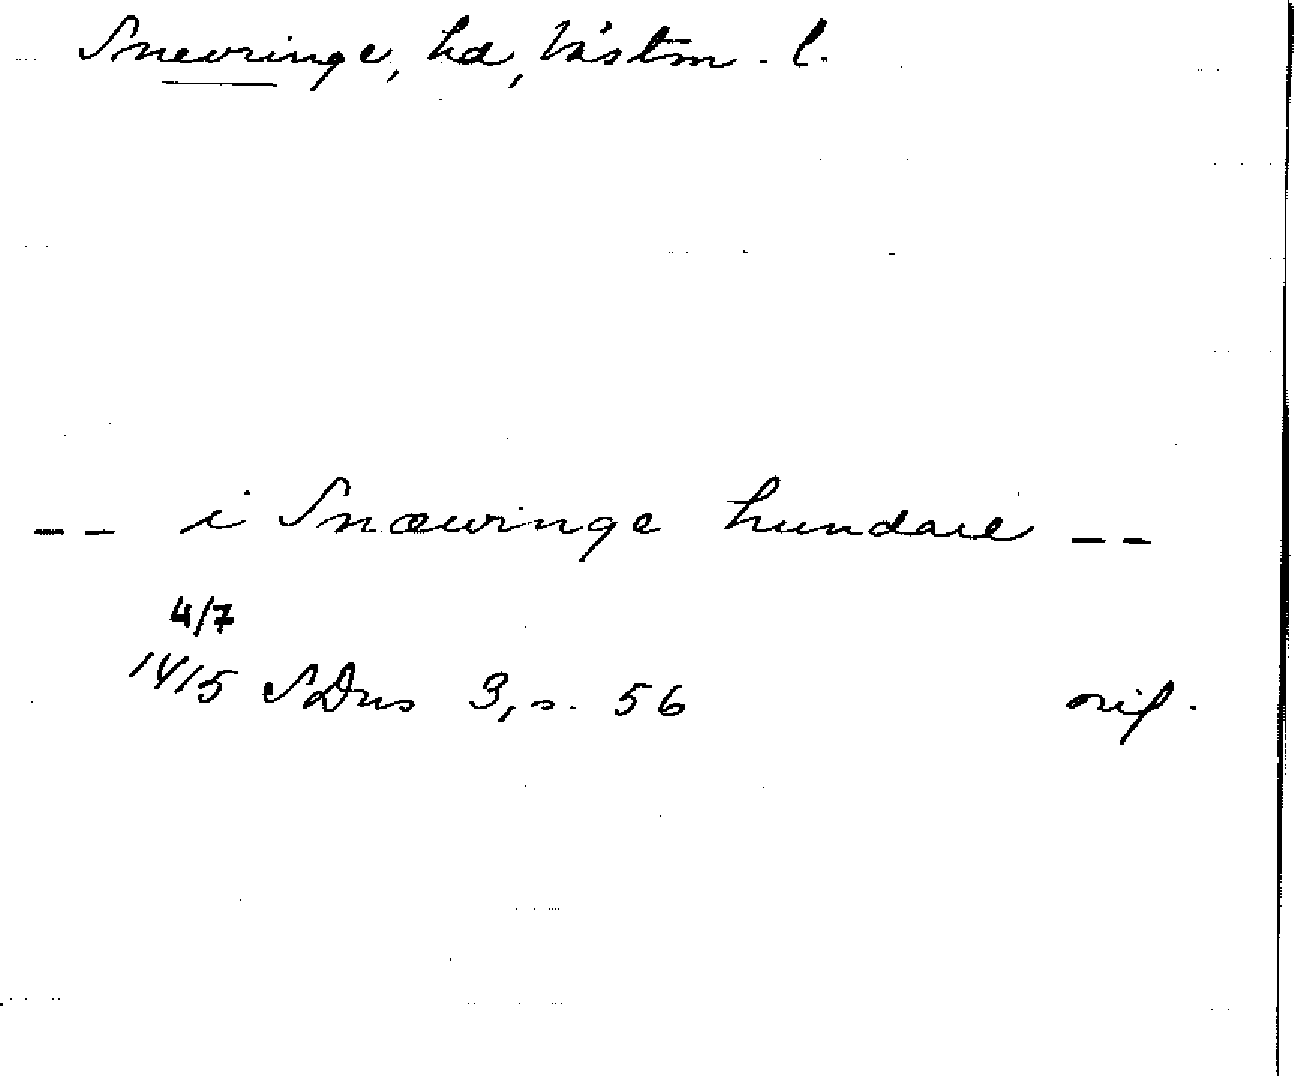 Snevringe, hd, Västm. l.
-- i Snæwringe hundare --
4/7
1415 SDns 3, s. 56 orig.